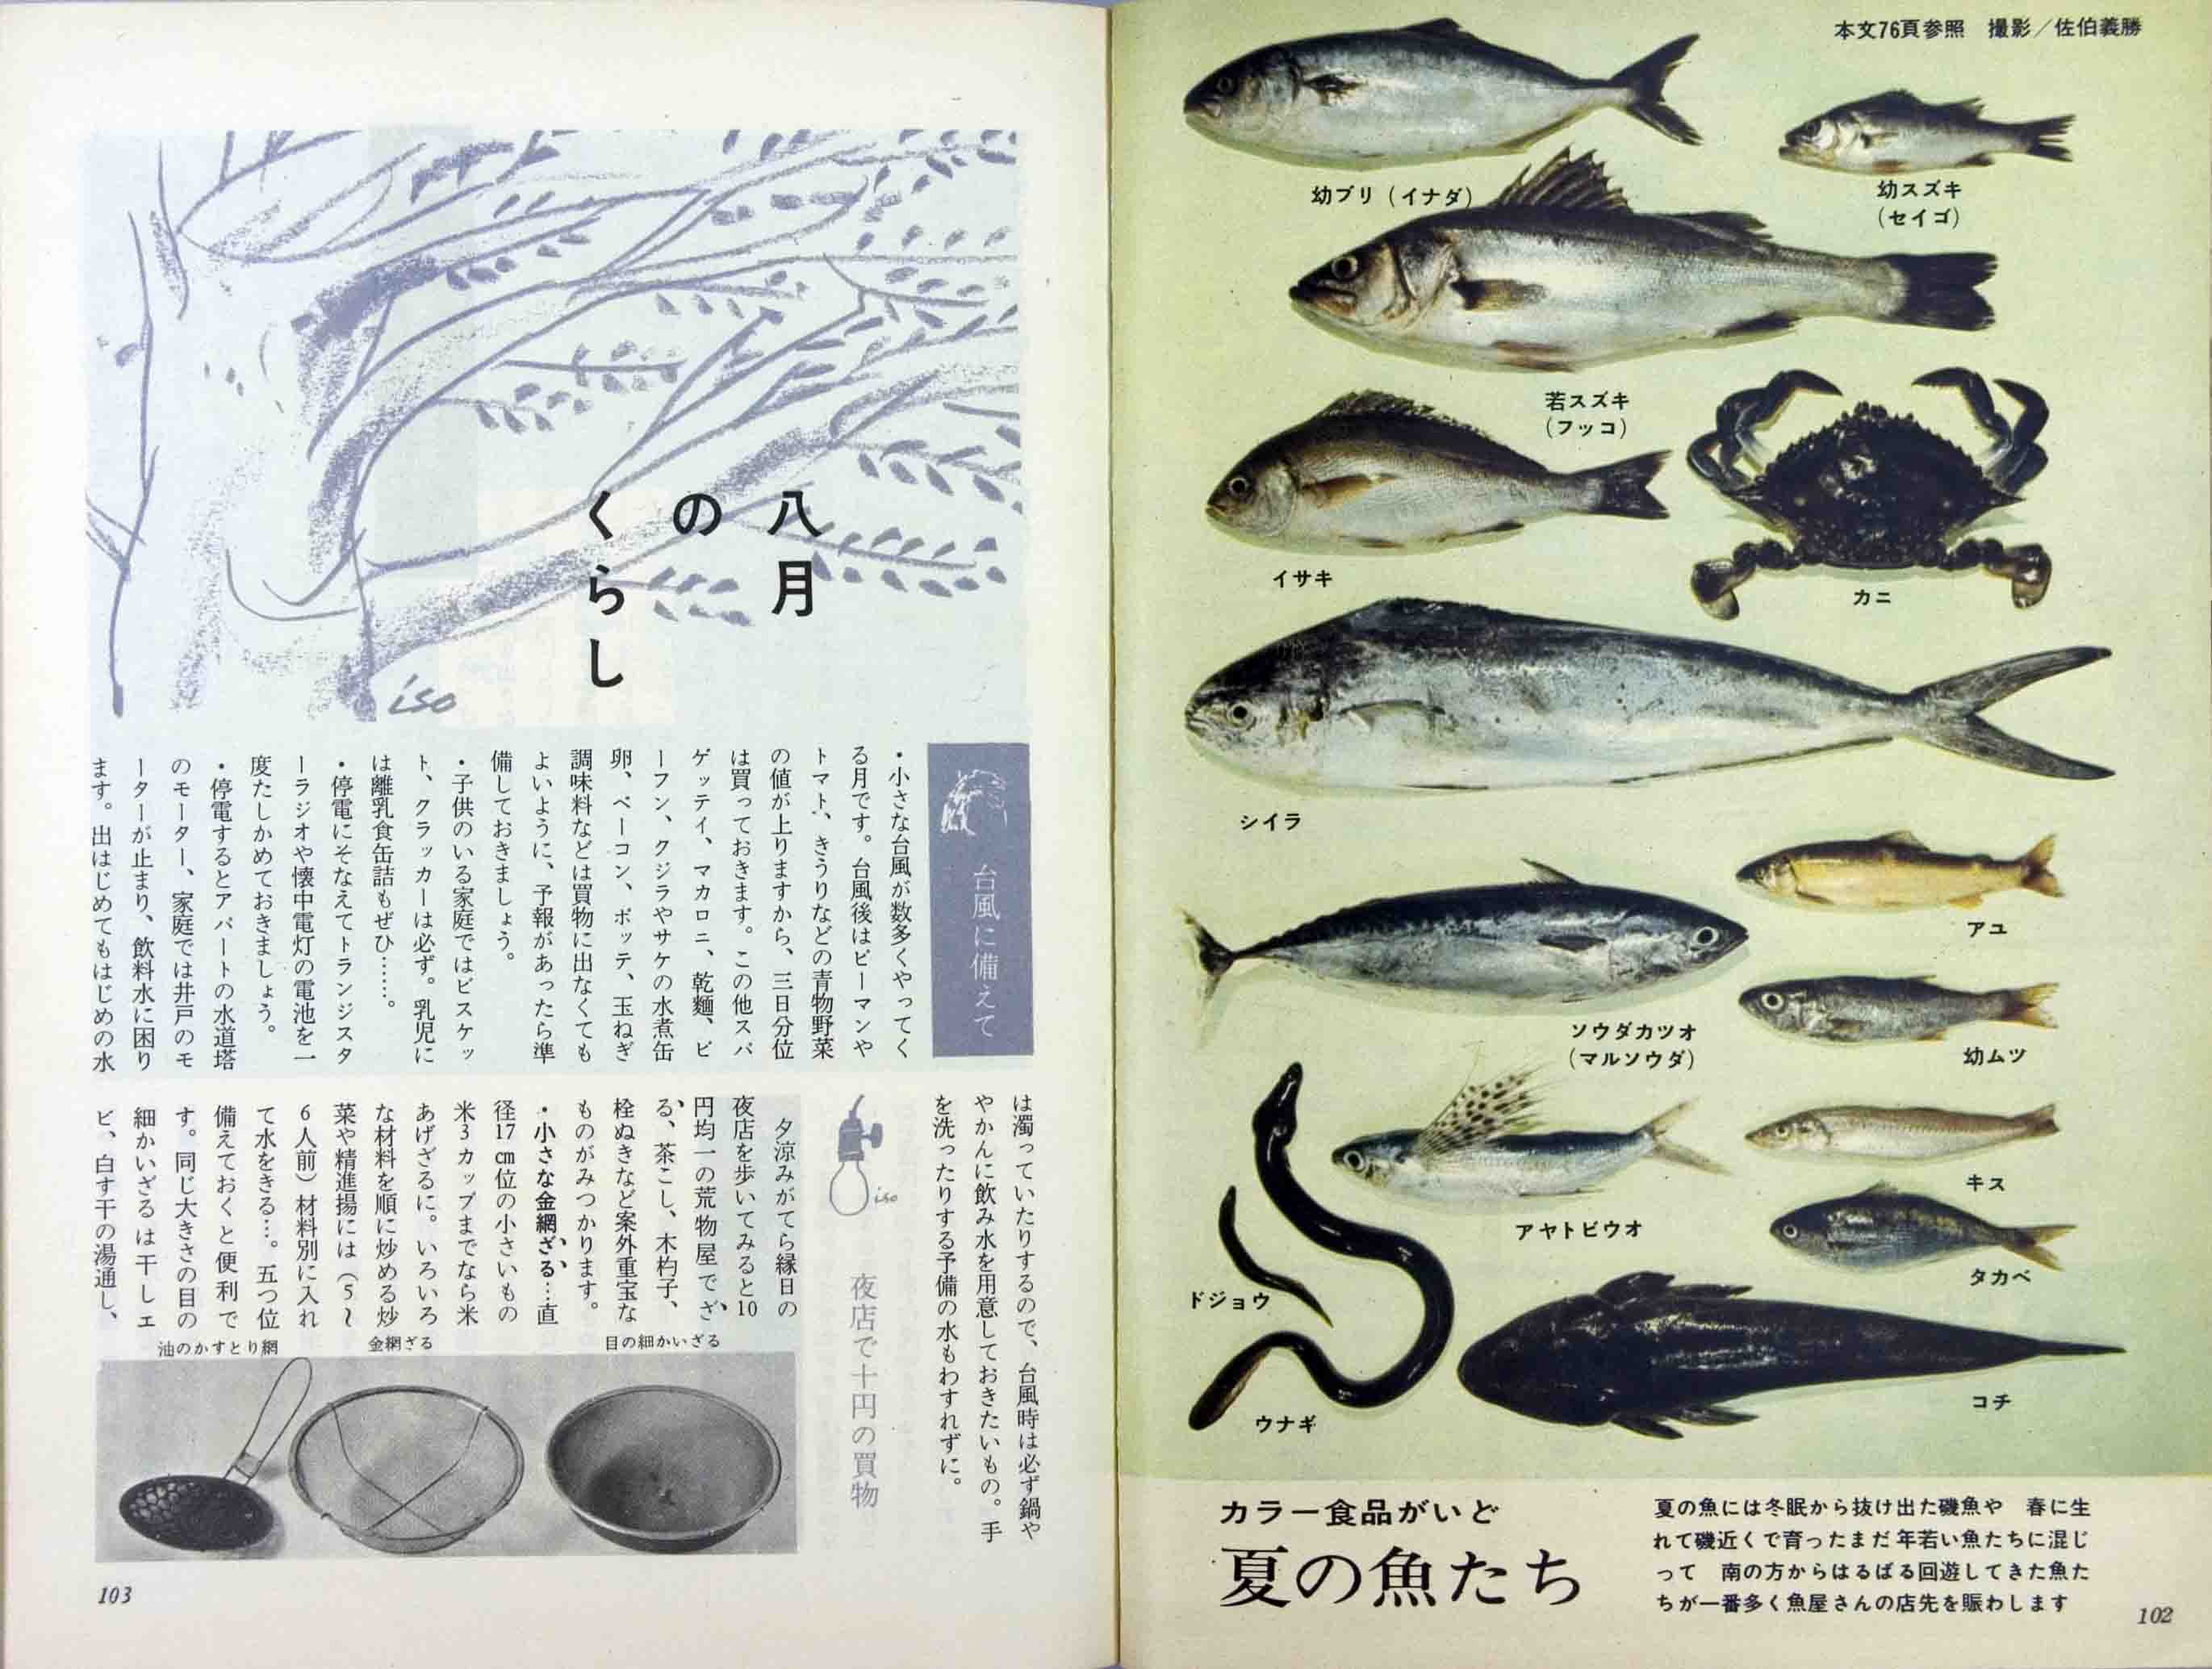 本文76頁参照　撮影／佐伯義勝
幼ブリ（イナダ）
幼スズキ
（セイゴ）
若スズキ
（フッコ）
イサキ
カニ
シイラ
アユ
ソウダカツオ
（マルソウダ）
幼ムツ
キス
アヤトビウオ
タカベ
ドジョウ
ウナギ
コチ
カラー食品がいど
夏の魚たち
夏の魚には冬眠から抜け出た磯魚や　春に生
れて磯近くで育ったまだ年若い魚たちに混じ
って　南の方からはるばる回遊してきた魚た
ちが一番多く魚屋さんの店先を賑わします
102
八月
の
くらし
iso
台風に備えて
・小さな台風が数多くやってく
る月です。台風後はピーマンや
トマト、きうりなどの青物野菜
の値が上りますから、三日分位
は買っておきます。この他スパ
ゲッティ、マカロニ、乾麺、ビ
ーフン、クジラやサケの水煮缶
卵、ベーコン、ポッテ、玉ねぎ
調味料などは買物に出なくても
よいように、予報があったら準
備しておきましょう。
・子供のいる家庭ではビスケッ
ト、クラッカーは必ず。乳児に
は離乳食缶詰もぜひ……。
・停電にそなえてトランジスタ
ーラジオや懐中電灯の電池を一
度たしかめておきましょう。
・停電するとアパートの水道塔
のモーター、家庭では井戸のモ
ーターが止まり、飲料水に困り
ます。出はじめてもはじめの水
は濁っていたりするので、台風時は必ず鍋や
やかんに飲み水を用意しておきたいもの。手
を洗ったりする予備の水もわすれずに。
iso
夜店で十円の買物
夕涼みがてら縁日の
夜店を歩いてみると10
円均一の荒物屋でざ
る、茶こし、木杓子、
栓ぬきなど案外重宝な
ものがみつかります。
・小さな金網ざる…直
径17㎝位の小さいもの
米3カップまでなら米
あげざるに。いろいろ
な材料を順に炒める炒
菜や精進揚には（5〜
6人前）材料別に入れ
て水をきる…。五つ位
備えておくと便利で
す。同じ大きさの目の
細かいざるは干しエ
ビ、白す干の湯通し、
目の細かいざる
金網ざる
油のかすとり網
103